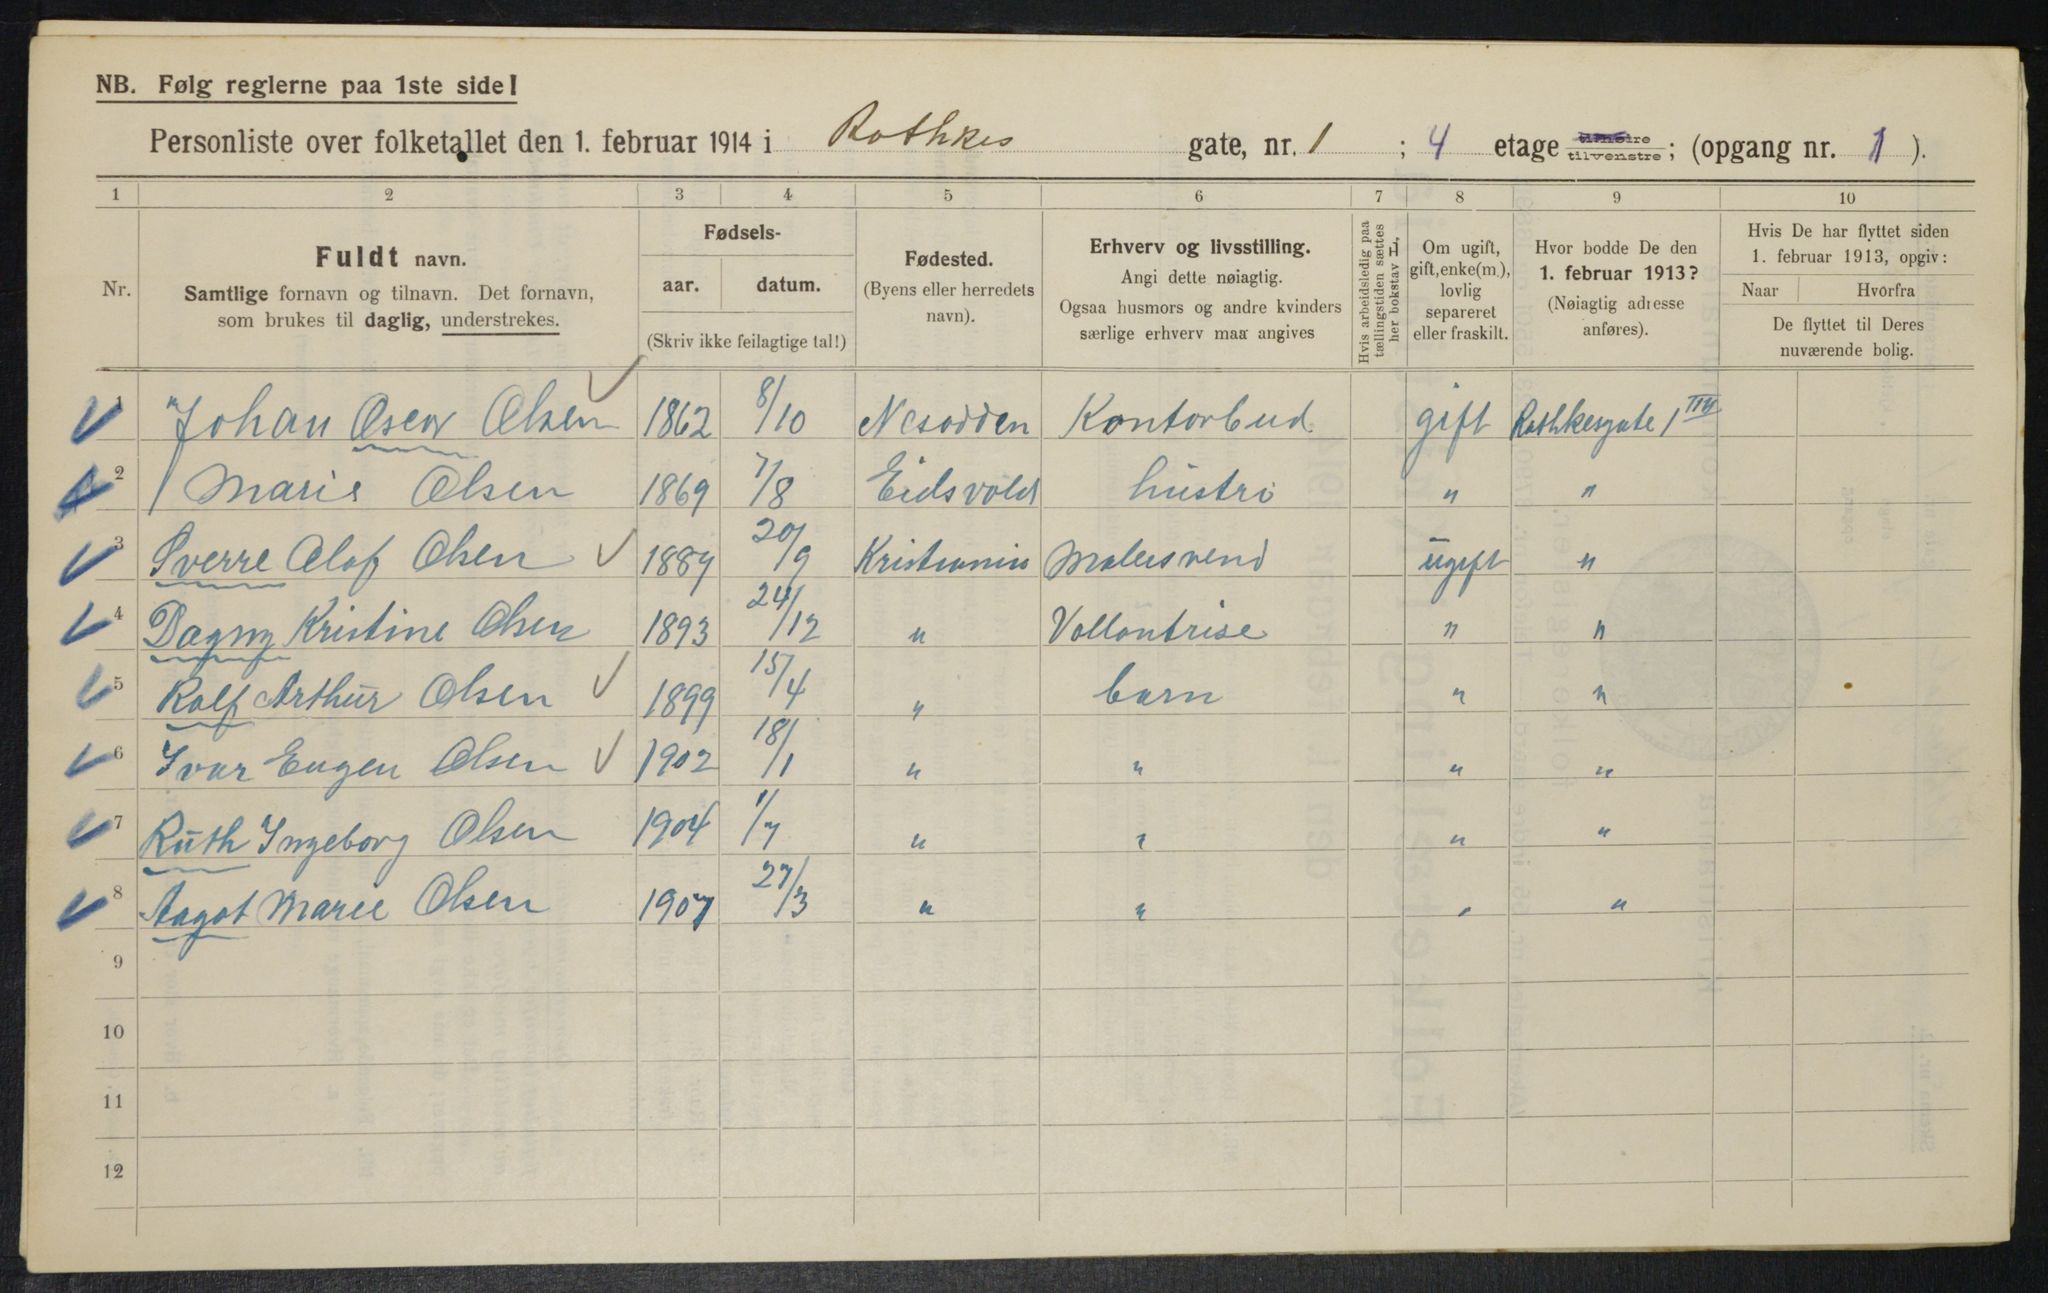 NB. Følg reglerne paa 1ste side!
Personliste over folketallet den 1. februar 1914 i Rathkes gate, nr. 1 ; 4 etage tilhøire tilvenstre ; (opgang nr. 1 ).
1 2 3 4 5 6 7 8 9 10
Nr.
Fuldt navn.
Samtlige fornavn og tilnavn. Det fornavn,
som brukes til daglig, understrekes.
Fødsels-
aar. datum.
(Skriv ikke feilagtige tal!)
Fødested.
(Byens eller herredets
navn).
Erhverv og livsstilling.
Angi dette nøiagtig.
Ogsaa husmors og andre kvinders
særlige erhverv maa angives
Hvis arbeidsledig paa
tællingstiden sættes
her bokstav L.
Om ugift,
gift, enke(m.),
lovlig
separeret
eller fraskilt.
Hvor bodde De den
1. februar 1913?
(Nøiagtig adresse
anføres).
Hvis De har flyttet siden
1. februar 1913, opgiv:
Naar Hvorfra
De flyttet til Deres
nuværende bolig.
1 Johan Oscar Olsen 1862 8/10 Nesodden Kontorbud gift Rathkesgate 1 III
2 Marie Olsen 1869 7/8 Eidsvold hustru " "
3 Sverre Olaf Olsen 1889 20/9 Kristiania Malersvend ugift "
4 Dagny Kristine Olsen 1893 24/12 " Vollontrise " "
5 Rolf Arthur Olsen 1899 15/4 " barn " "
6 Ivar Eugen Olsen 1902 18/1 " " " "
7 Ruth Ingeborg Olsen 1904 1/7 " " " "
8 Aagot Marie Olsen 1907 27/3 " " " "
9
10
11
12